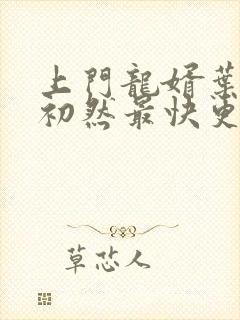 上門龍婿葉
初然最快更
草芯人